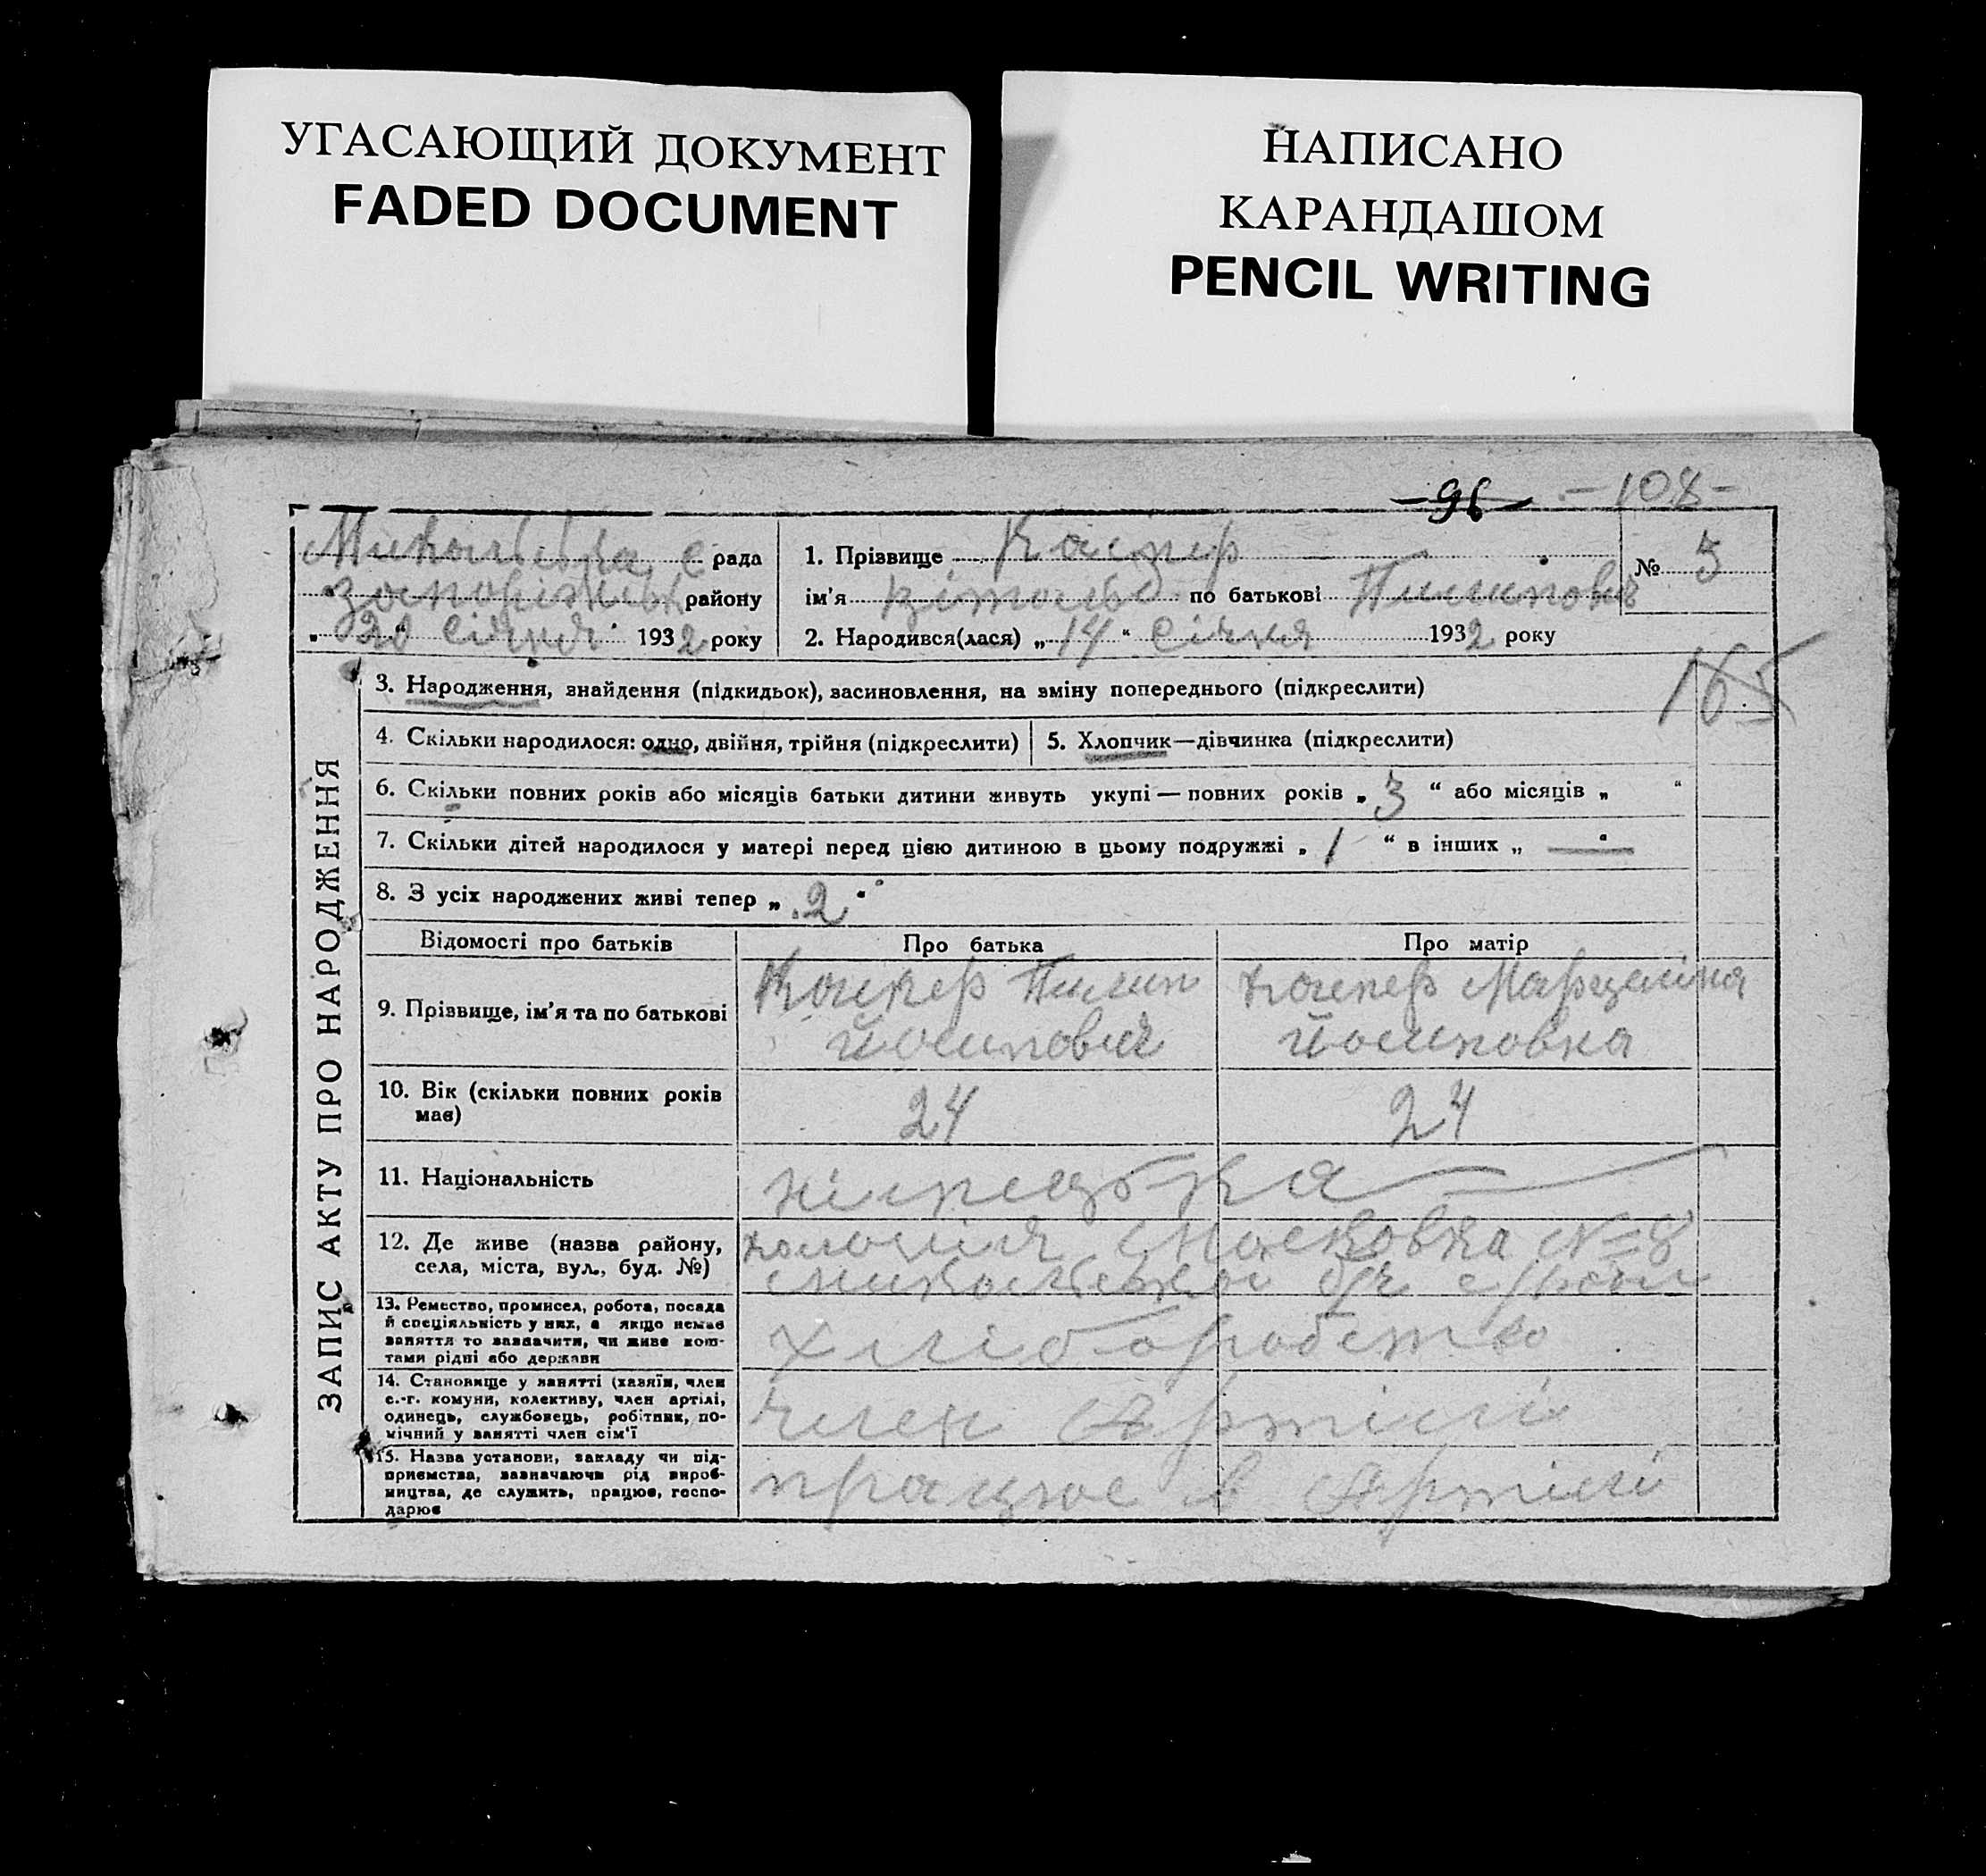 УГАСАЮЩИЙ ДОКУМЕНТ
FADED DOCUMENT
НАПИСАНО
КАРАНДАШОМ
PENCIL WRITING
96 -108-
с рада
Запоріжськ району
„20" січня 1932 року
1. Прізвище Каспер
ім'я по батькові Пилипович
2. Народився(лася) „14" Січня 1932 року
№ 5
165
ЗАПИС АКТУ ПРО НАРОДЖЕННЯ
3. Народження, знайдення (підкидьок), засиновлення, на зміну попереднього (підкреслити)
4. Скільки народилося: одно, двійня, трійня (підкреслити)
5. Хлопчик—дівчинка (підкреслити)
6. Скільки повних років або місяців батьки дитини живуть укупі — повних років „3" або місяців „ "
7. Скільки дітей народилося у матері перед цією дитиною в цьому подружжі „1" в інших „—"
8. З усіх народжених живі тепер „2"
Відомості про батьків
Про батька
Про матір
9. Прізвище, ім'я та по батькові
Каспер Пилип
Йосипович
Каспер Марцеліна
Йосиповна
10. Вік (скільки повних років
має)
24
24
11. Національність
німецька
12. Де живе (назва району,
села, міста, вул., буд. №)
колонія Московка № 8
13. Ремество, промисел, робота, посада
й спеціяльність у них, а якщо немає
заняття то зазначити, чи живе кош-
тами рідні або держави
хліборобство
14. Становище у занятті (хазяїн, член
с.-г. комуни, колективу, член артілі,
одинець, службовець, робітник, по-
мічний у занятті член сім'ї
член Артілі
15. Назва установи, закладу чи під-
приємства, зазначаючи рід вироб-
ництва, де служить, працює, госпо-
дарює
працює в Артілі